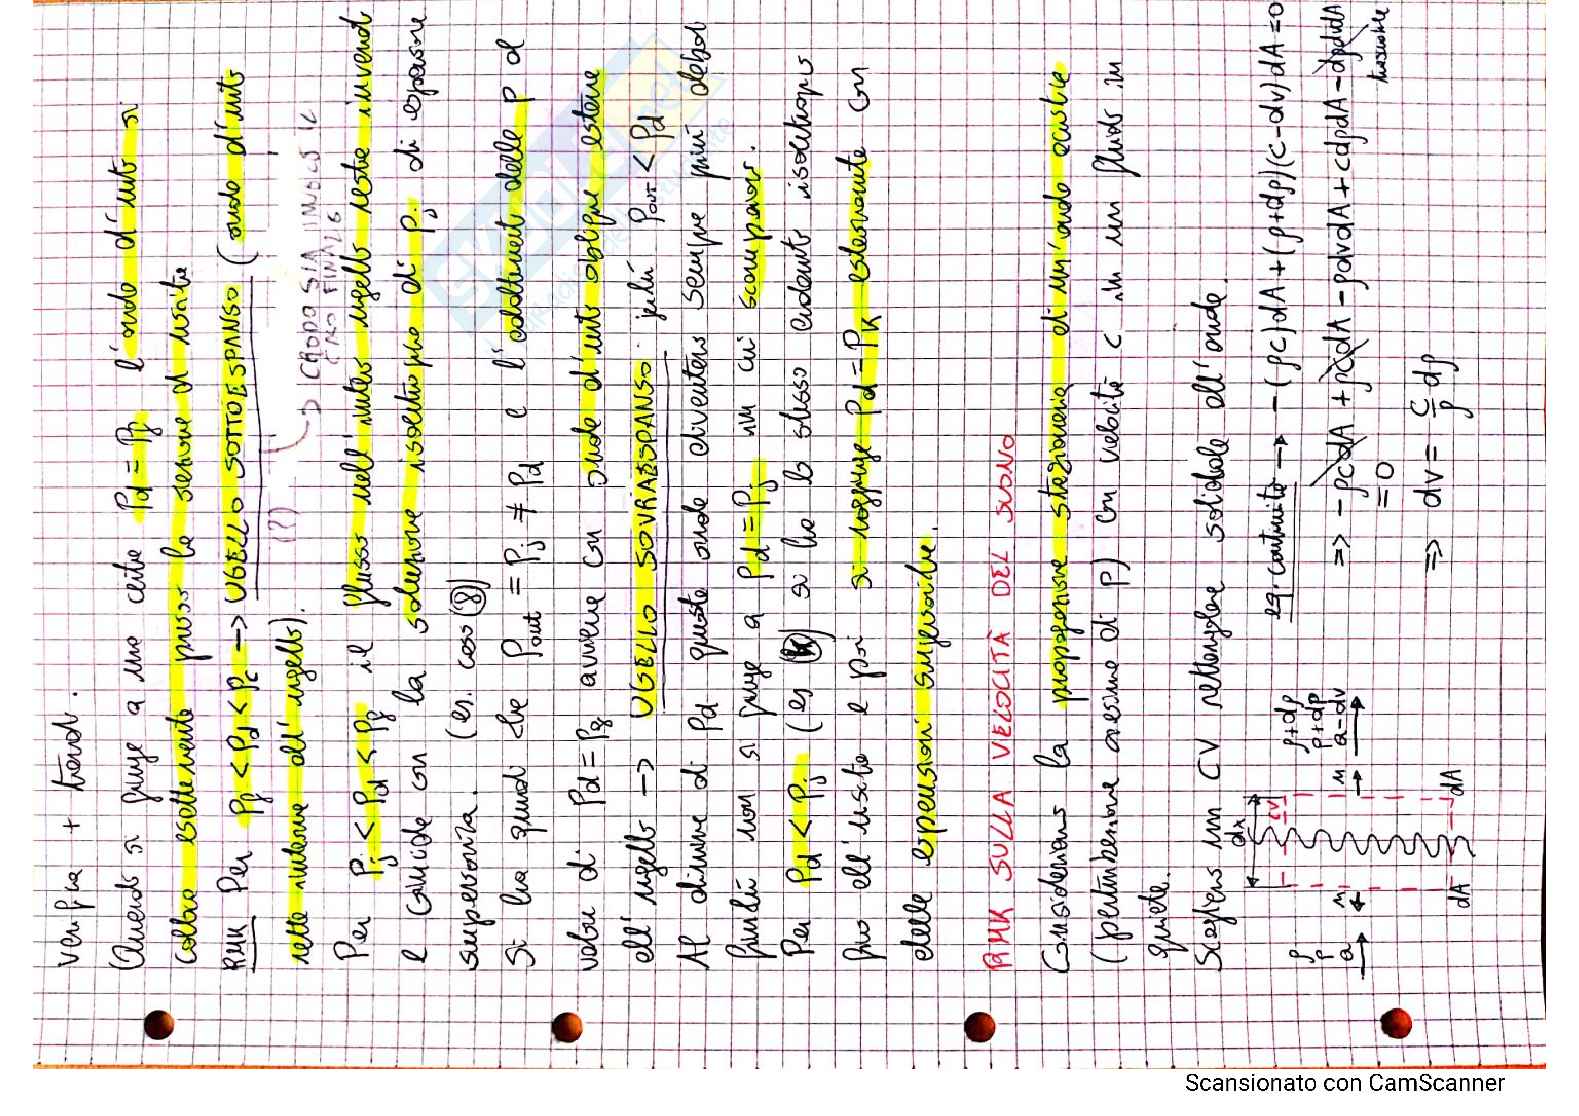 verifica + tardi.
Quando si giunge a una certa Pd = Pg l'onda d'urto si
colloca esattamente presso la sezione di uscita
RMK Per Pg < Pd < Pc → UGELLO SOTTOESPANSO (onda d'urto
nella interno all'ugello).
(?) → CREDO SIA INVECE IL
CASO FINALE
Per Pj < Pd < Pg il flusso nell'intero ugello resta invariat
e coincide con la soluzione isoentropica di Pj di espansione
supersonica. (es. caso (g))
Si ha quindi che Pout = Pj ≠ Pd e l'adattamento della P al
valore di Pd = Pg avviene con onde d'urto oblique esterne
all'ugello → UGELLO SOVRAESPANSO: poiché Pout < Pd
Al diminuire di Pd queste onde diventano sempre più deboli
finché non si giunge a Pd = Pj in cui scompaiono.
Per Pd < Pj (es (k)) si ha lo stesso andamento isoentropico
fino all'uscita e poi si raggiunge Pd = Pk esternamente con
delle espansioni supersoniche.
RMK SULLA VELOCITÀ DEL SUONO
Consideriamo la propagazione stazionaria di un'onda acustica
(perturbazione di P) con velocità c in un fluido in
quiete.
Scegliamo un CV rettangolare solidale all'onda.
dx
CV
ρ
P
a
n
n
ρ+dρ
P+dP
a-dv
dA
dA
eq. continuità → -(ρc)dA + (ρ+dρ)(c-dv)dA = 0
=> -ρcdA + ρcdA - ρdvdA + cdρdA - dρdvdA
= 0
trascurabile
=> dv = c/ρ dρ
Scansionato con CamScanner